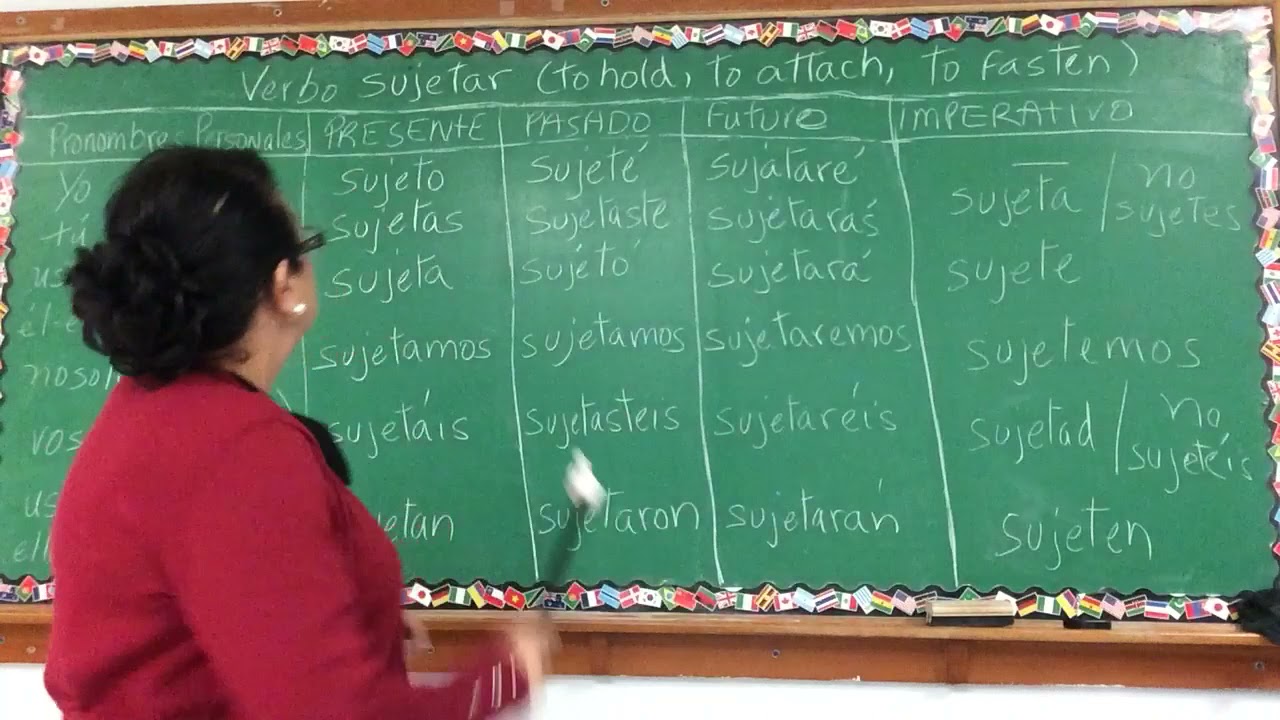 Verbo sujetar (to hold, to attach, to fasten)
Pronombres Personales PRESENTE PASADO Futuro IMPERATIVO
Yo sujeto sujeté sujataré —
tú sujetas sujetaste sujetarás sujeta / no sujetes
sujeta sujetó sujetará sujete
sujetamos sujetamos sujetaremos sujetemos
sujetáis sujetasteis sujetaréis sujetad / no sujetéis
sujetaron sujetarán sujeten